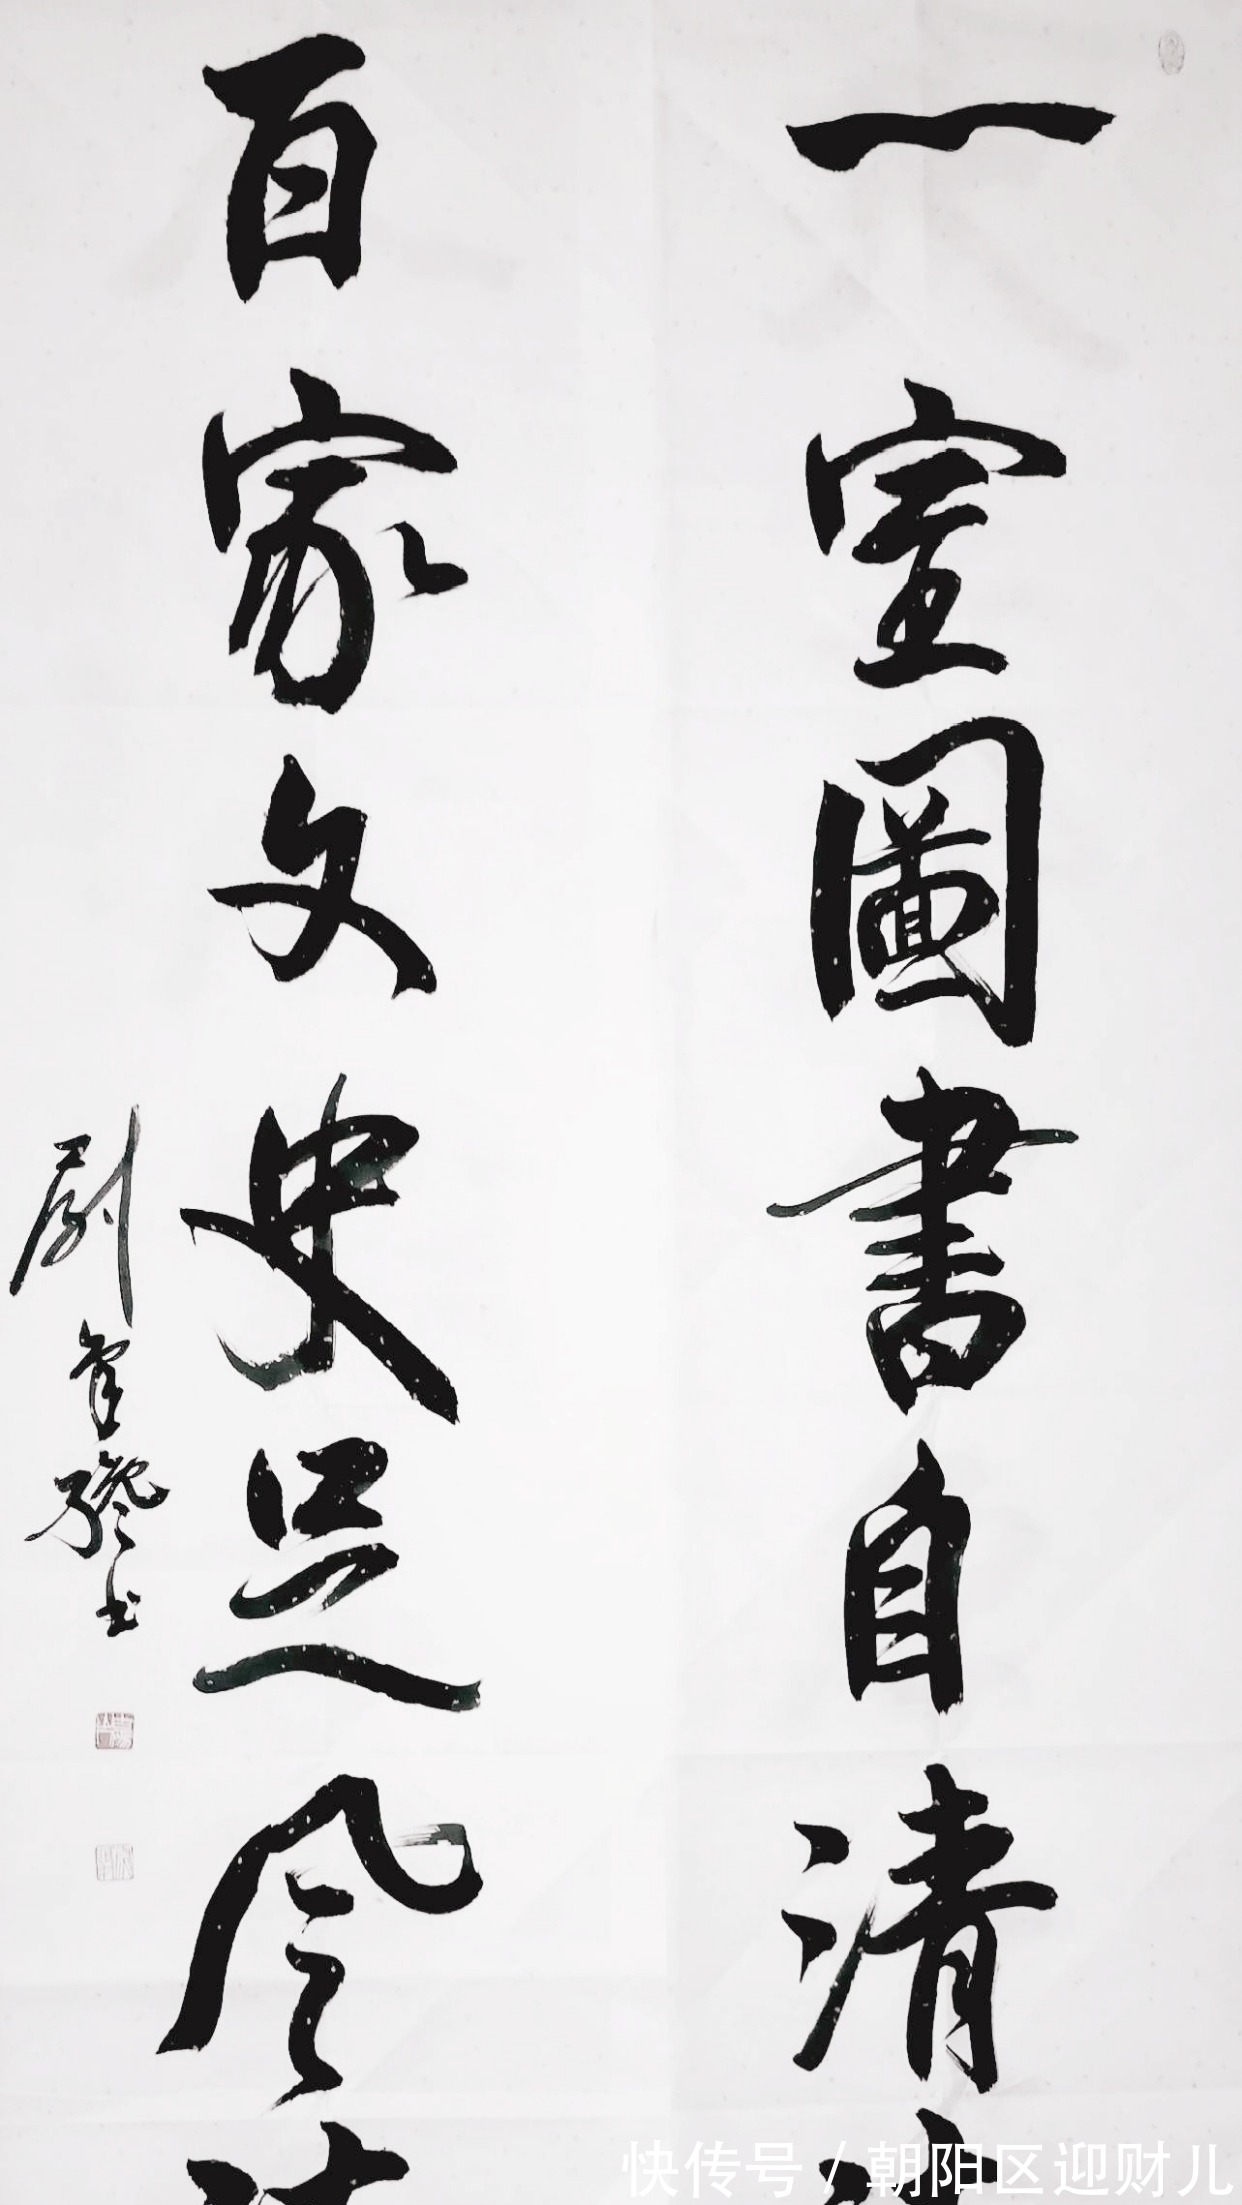 一室圖書自清
百家文史足风
书
快传号 / 朝阳区迎财儿